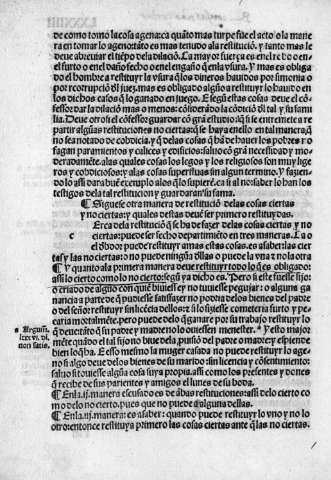 de como tomo la cosa agena: ca quãto mas turpe fue el acto o la mane
ra en tomar lo ageno: tãto es mas tenudo a la restituciõ. y tanto mas le
deue abreuiar el tiẽpo de la dilaciõ. La mayor fuerça es en el robo o en
el furto o en el daño fecho o en el engaño q̃ en la vsura. Y mas es obliga
do el hombre a restituyr la vsura q̃ los dineros hauidos por simonia o
por rcorrupciõ d'l juez. mas es obligado algũo a restituyr lo hauido en
los dichos casos q̃ lo ganado en juego. E segũ estas cosas deue el cõ=
fessor dar la dilaciõ mas o menos: cõsiderãdo la cõdiciõ d'l tal y su fami
lia. Deue otrosi el cõfessor guardar cõ grã estudio q̃ si se entremete a re
partir algũas restituciones no ciertas: q̃ se haya en ello en tal manera q̃
no sea notado de cobdicia. y q̃ delas cosas q̃ hã de hauer los pobres no
fagan paramientos y calices y edificios: saluo cõ grã necessidad y mo=
deradamẽte. alas quales cosas los legos y los religiosos son muy lige
ros y cobdiciosos: y alas cosas superfluas sin algun termino. Y fazien
do lo assi dara buẽ exemplo alos q̃ lo supierẽ. ca si al no saber lo han los
testigos dela tal restitucion y guardaran su fama.
¶ Siguese otra manera de restituciõ delas cosas ciertas
y no ciertas: y quales destas deuẽ ser primero restituydas.
Erca dela restituciõ q̃ se ha de fazer delas cosas ciertas y no
c ciertas: puede ser fecho departimiento en tres maneras. La o
el d'bdor puede restituyr amas estas cosas. es a saber: las cier
tas y las no ciertas: o no puede ningũa d'llas o puede la vna z nola otra
¶ Y quanto ala primera manera deue restituyr todo lo q̃ es obligado:
assi lo cierto como lo no cierto: segũ ya dicho es. Pero si este fuesse fijo:
o criado de algũo con quiẽ biuiesse y no tuuiesse pegujar: o alguna ga
nancia a parte de q̃ pudiesse satisfazer no podria delos bienes del padre
o del señor: restituyr sin licẽcia dellos: z si lo fiziesse cometeria furto y pe=
caria mortalmẽte. pero puede delo q̃ ganare por su trabajo restituyr lo
q̃ de utãto q̃ su padre y madre no lo ouiessen menester.ᵃ Y esto mayor
a Argum̃. lxxxvi. di. non satis.
mẽte quãdo el tal fijo no biue dela pusiõ del padre o madre: y espiende
bien lo q̃ ha. E esso mesmo la muger casada no puede restituyr lo age=
no si algo deue delos bienes de su marido sin licencia y cõsentimiẽto:
saluo si touiesse algũa cosa suya propia. assi como los presentes y dones
q̃ recibe de sus parientes y amigos el lunes de su boda.
¶ En la .ij. manera escusado es de ãbas restituciones: assi delo cierto co
mo delo no cierto. pues que no puede alguna dellas.
¶ En la .iij. manera: es a saber: quando puede restituyr lo vno y no lo
otro: entonce restituyra primero las cosas ciertas ante q̃ las no ciertas.